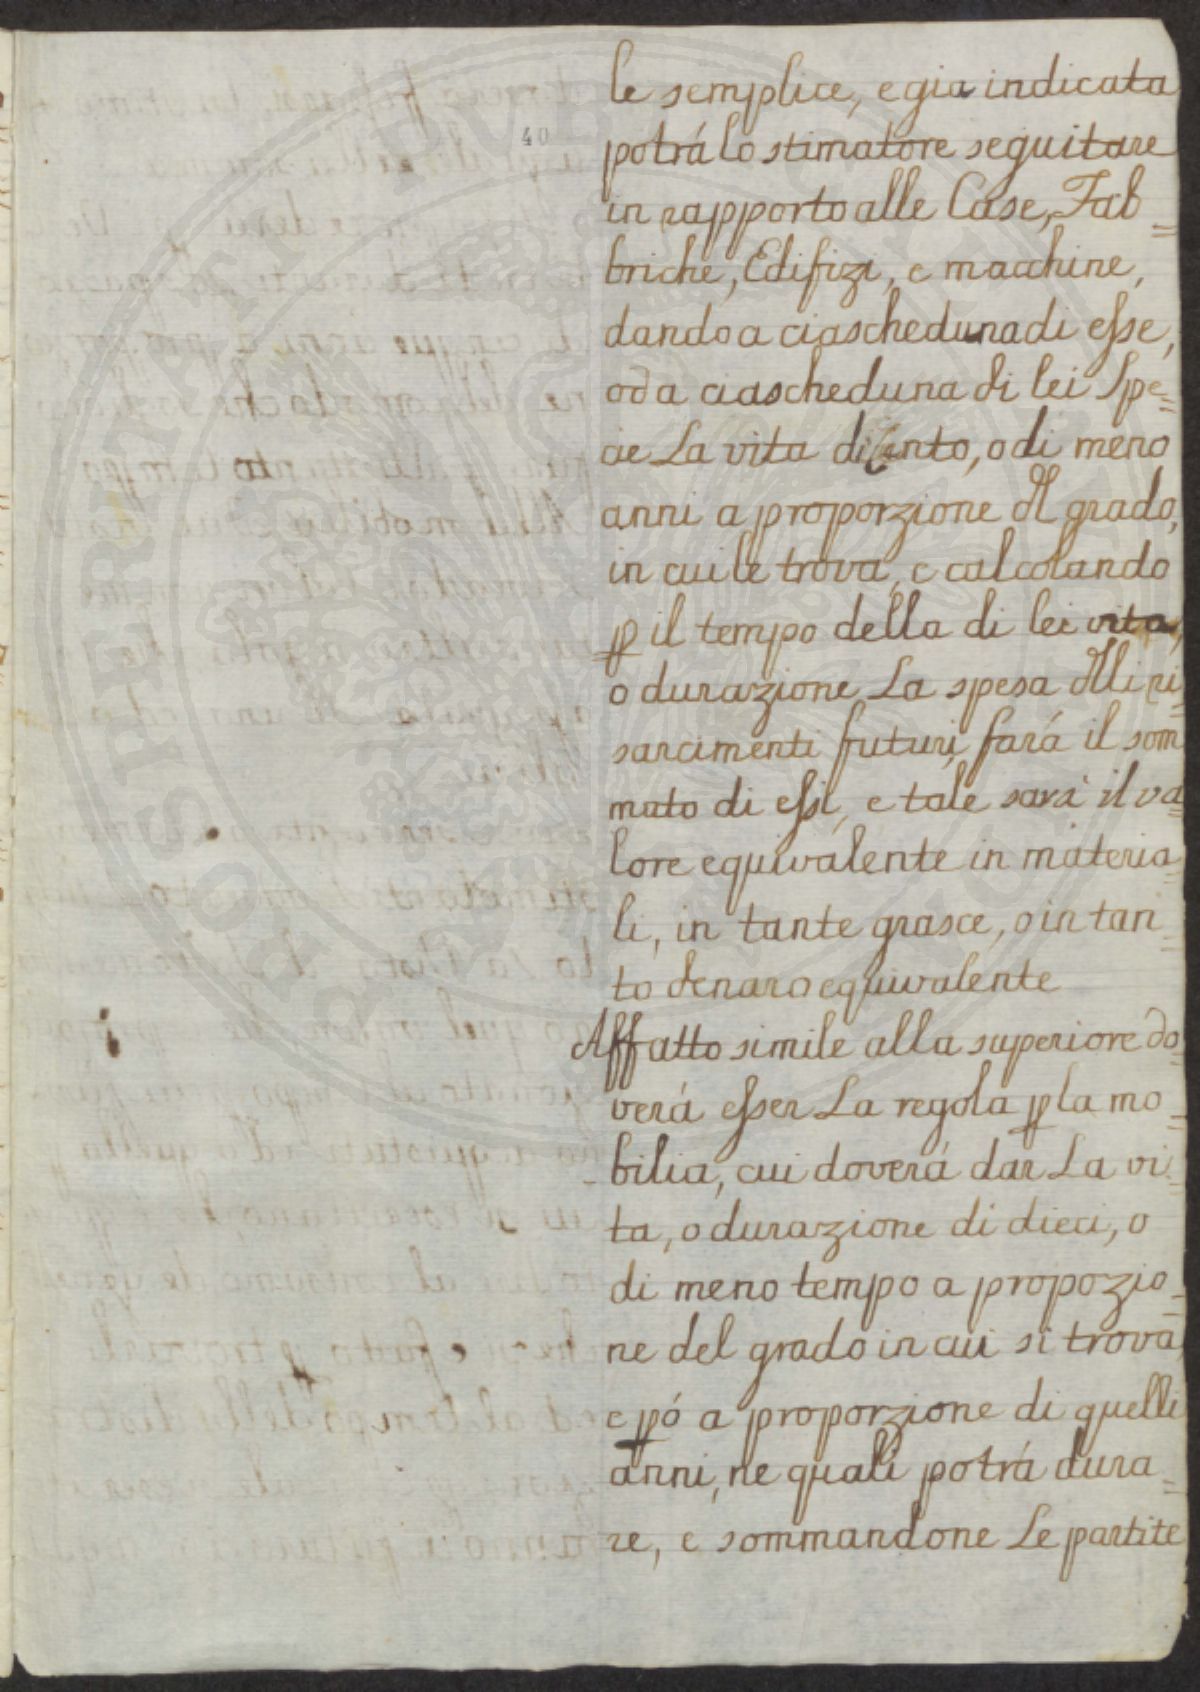 40
le semplice, e gia indicata
potrá lo stimatore seguitare
in rapporto alle Case, Fab=
briche, Edifizi, e macchine,
dando a ciascheduna di esse,
od a ciascheduna di lei Spe=
cie La vita di Cento, o di meno
anni a proporzione dl grado,
in cui le trova, e calcolando
p il tempo della di lei vita,
o durazione La spesa dlli ri=
sarcimenti futuri, fará il som=
mato di essi, e tale sará il va=
lore equivalente in materia=
li, in tante grasce, o in tan=
to denaro equivalente
Affatto simile alla superiore do=
verá esser La regola p la mo=
bilia, cui doverá dar La vi=
ta, o durazione di dieci, o
di meno tempo a propozio=
ne del grado in cui si trova,
e pó a proporzione di quelli
anni, ne quali potrá dura=
re, e sommandone Le partite